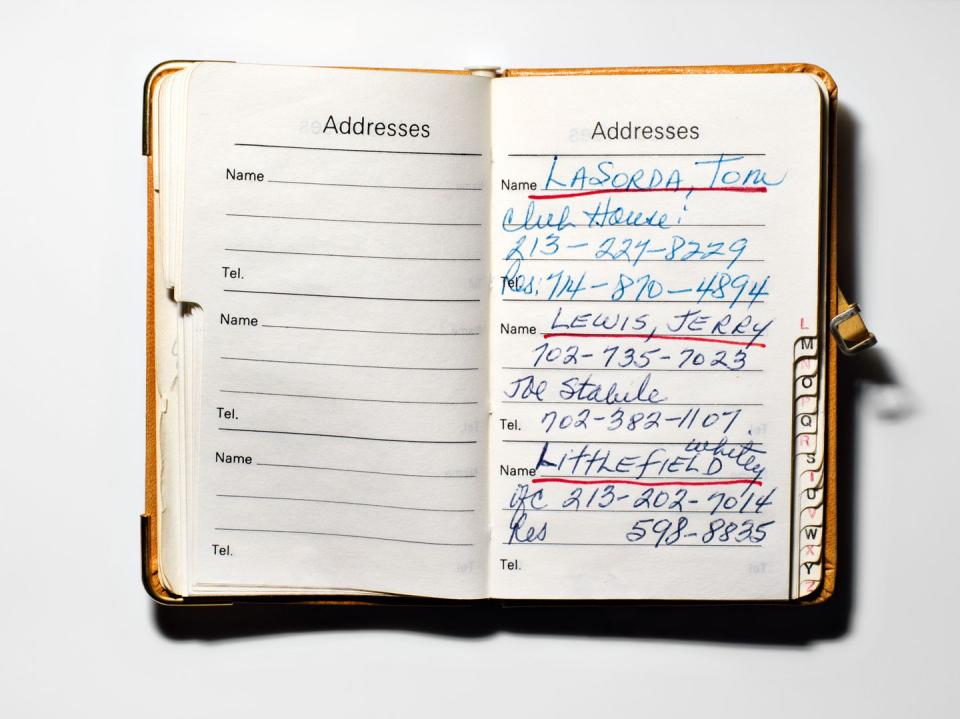 Addresses
Name
Tel.
Name
Tel.
Name
Tel.
Addresses
Name LASORDA, Tom
Club House:
213-227-8229
Tel. Res: 714-870-4894
Name LEWIS, JERRY
702-735-7023
Joe Stabile
Tel. 702-382-1107
Name LITTLEFIELD Whitey
ofc 213-202-7014
Res 598-8835
Tel.
L
M
N
O
P
Q
R
S
T
U
V
W
X
Y
Z